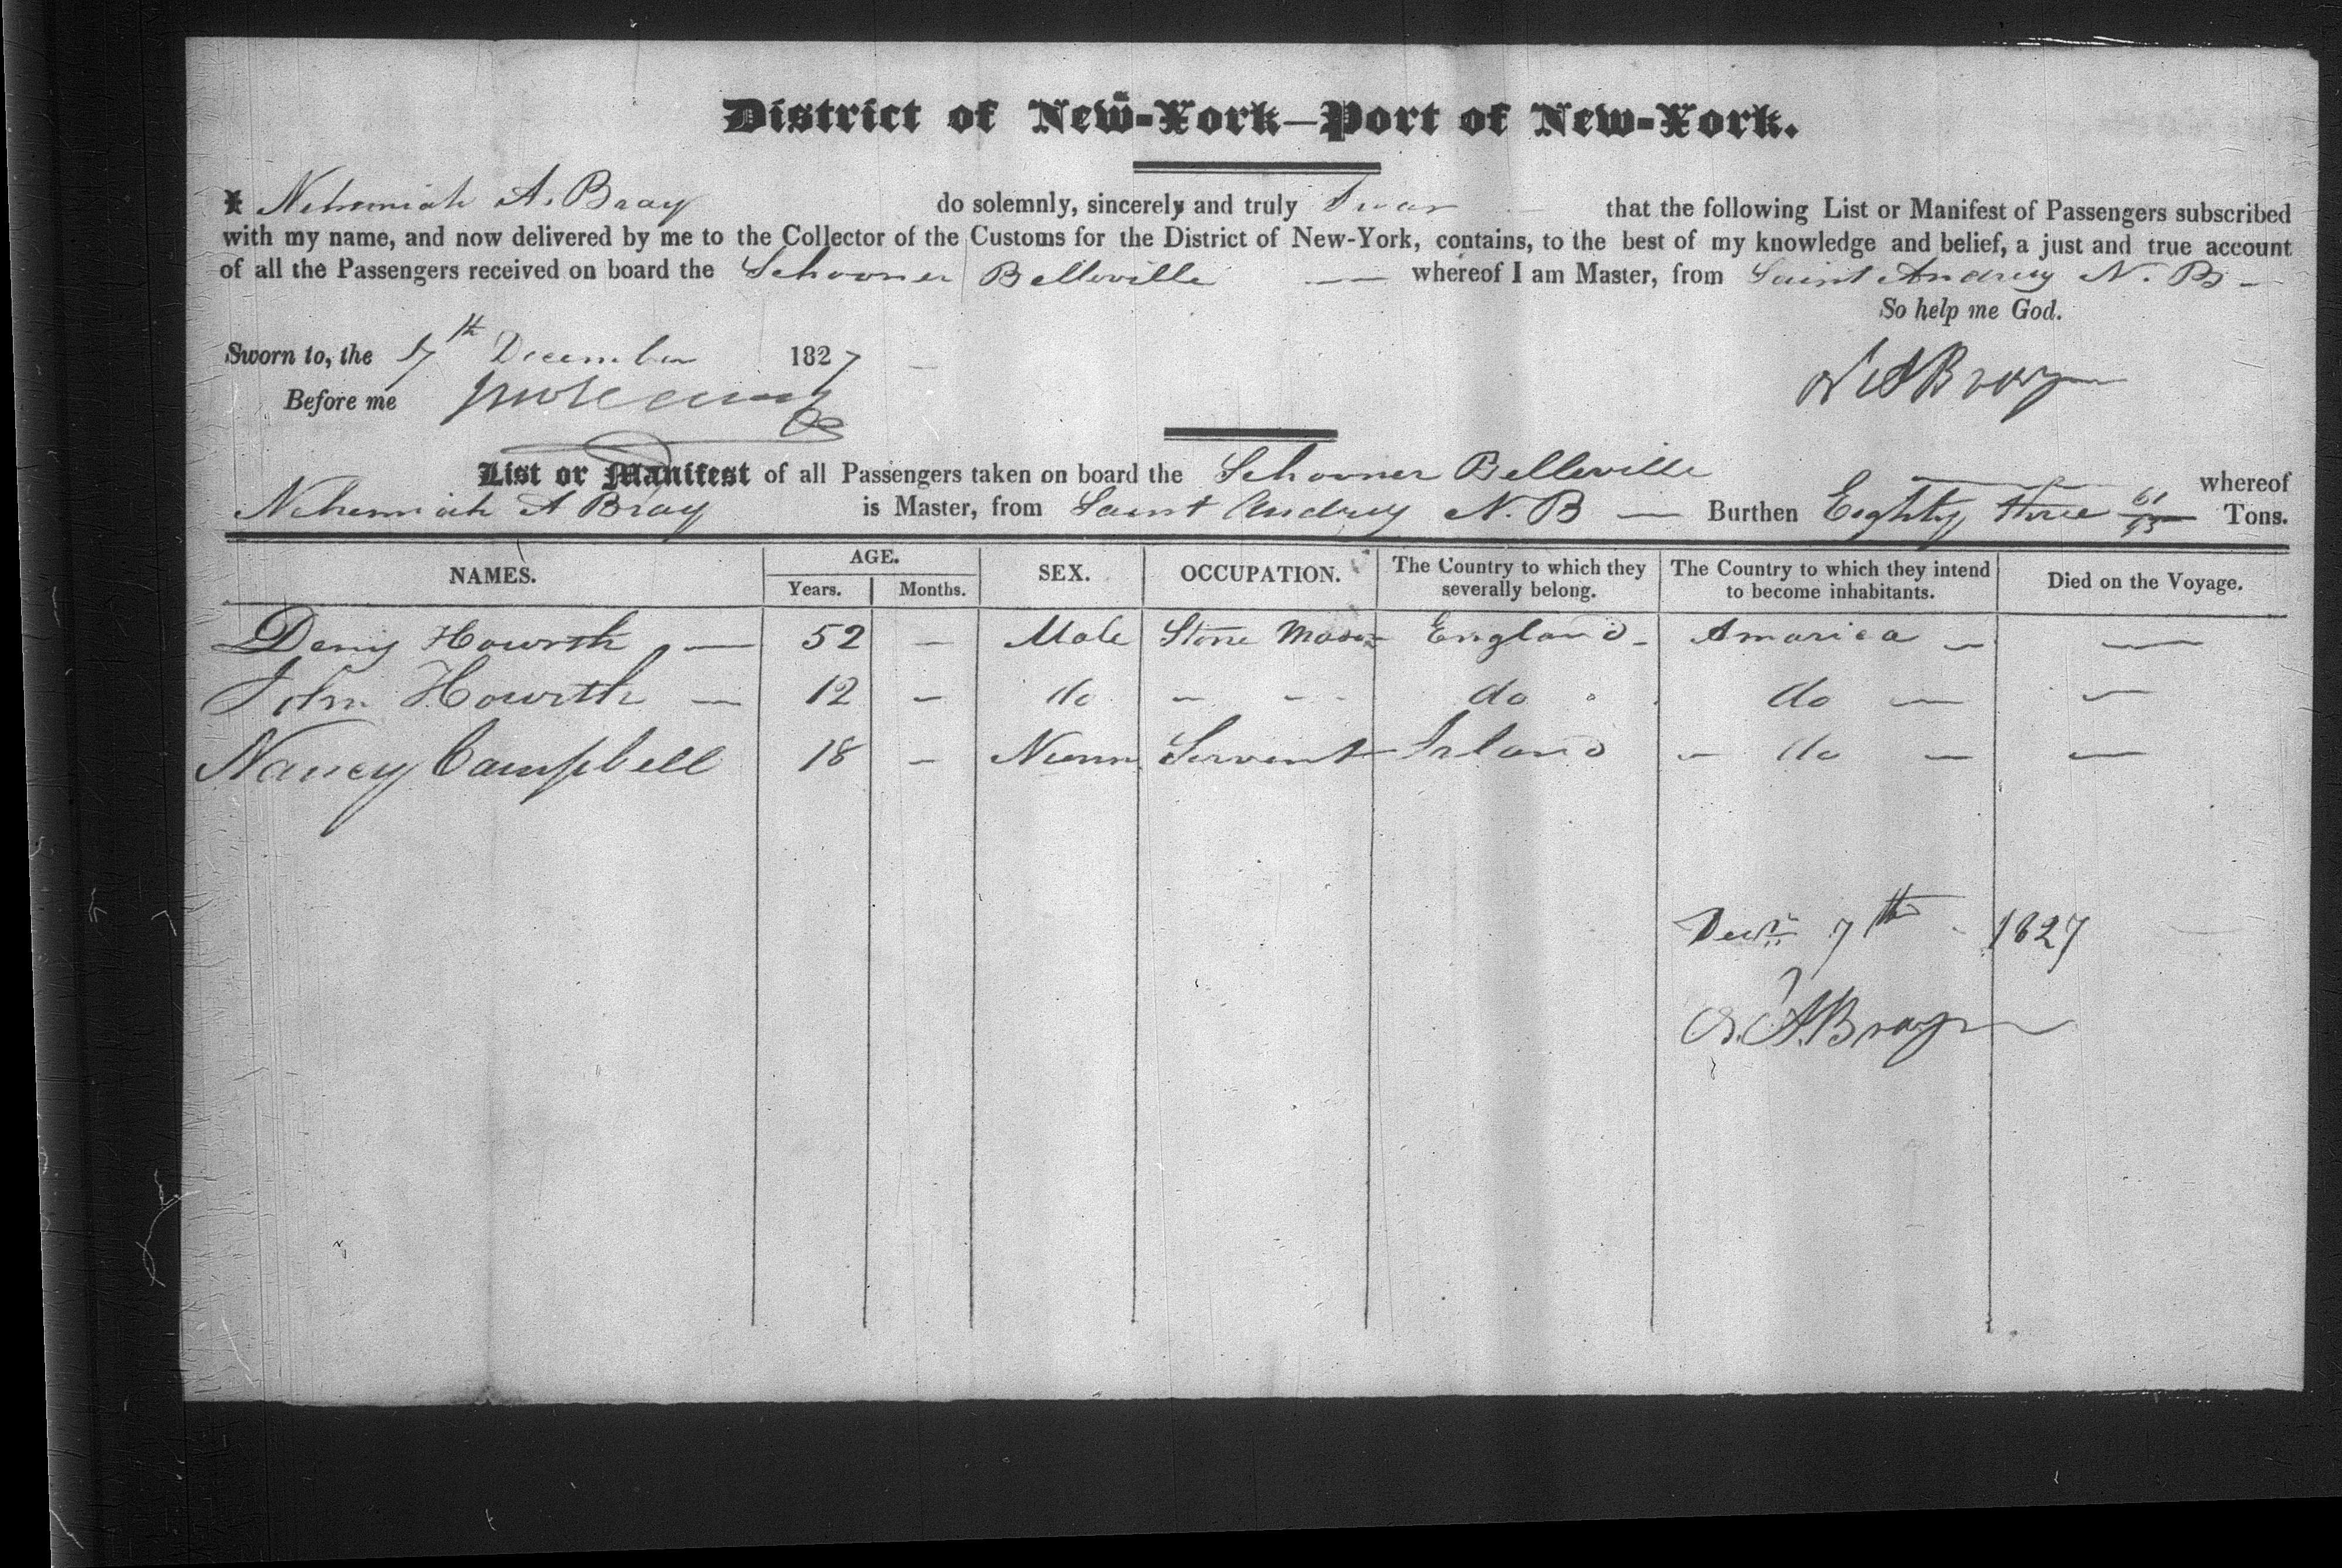 District of New-York—Port of New-York.
I Nehemiah A. Bray do solemnly, sincerely and truly Swear that the following List or Manifest of Passengers subscribed
with my name, and now delivered by me to the Collector of the Customs for the District of New-York, contains, to the best of my knowledge and belief, a just and true account
of all the Passengers received on board the Schooner Belleville — whereof I am Master, from Saint Andrews N. B —
So help me God.
Sworn to, the 7th December 1827
Before me
N A Bray
List or Manifest of all Passengers taken on board the Schooner Belleville whereof
Nehemiah A Bray is Master, from Saint Andrews N. B — Burthen Eighty three 61/95 Tons.
NAMES. AGE. SEX. OCCUPATION. The Country to which they severally belong. The Country to which they intend to become inhabitants. Died on the Voyage.
Years. Months.
Denis Howorth — 52 — Male Stone Mason England — America — —
John Howorth — 12 — do — — do do — —
Nancy Campbell 18 — Servant Irland — do — —
7th 1827
N. A. Bray